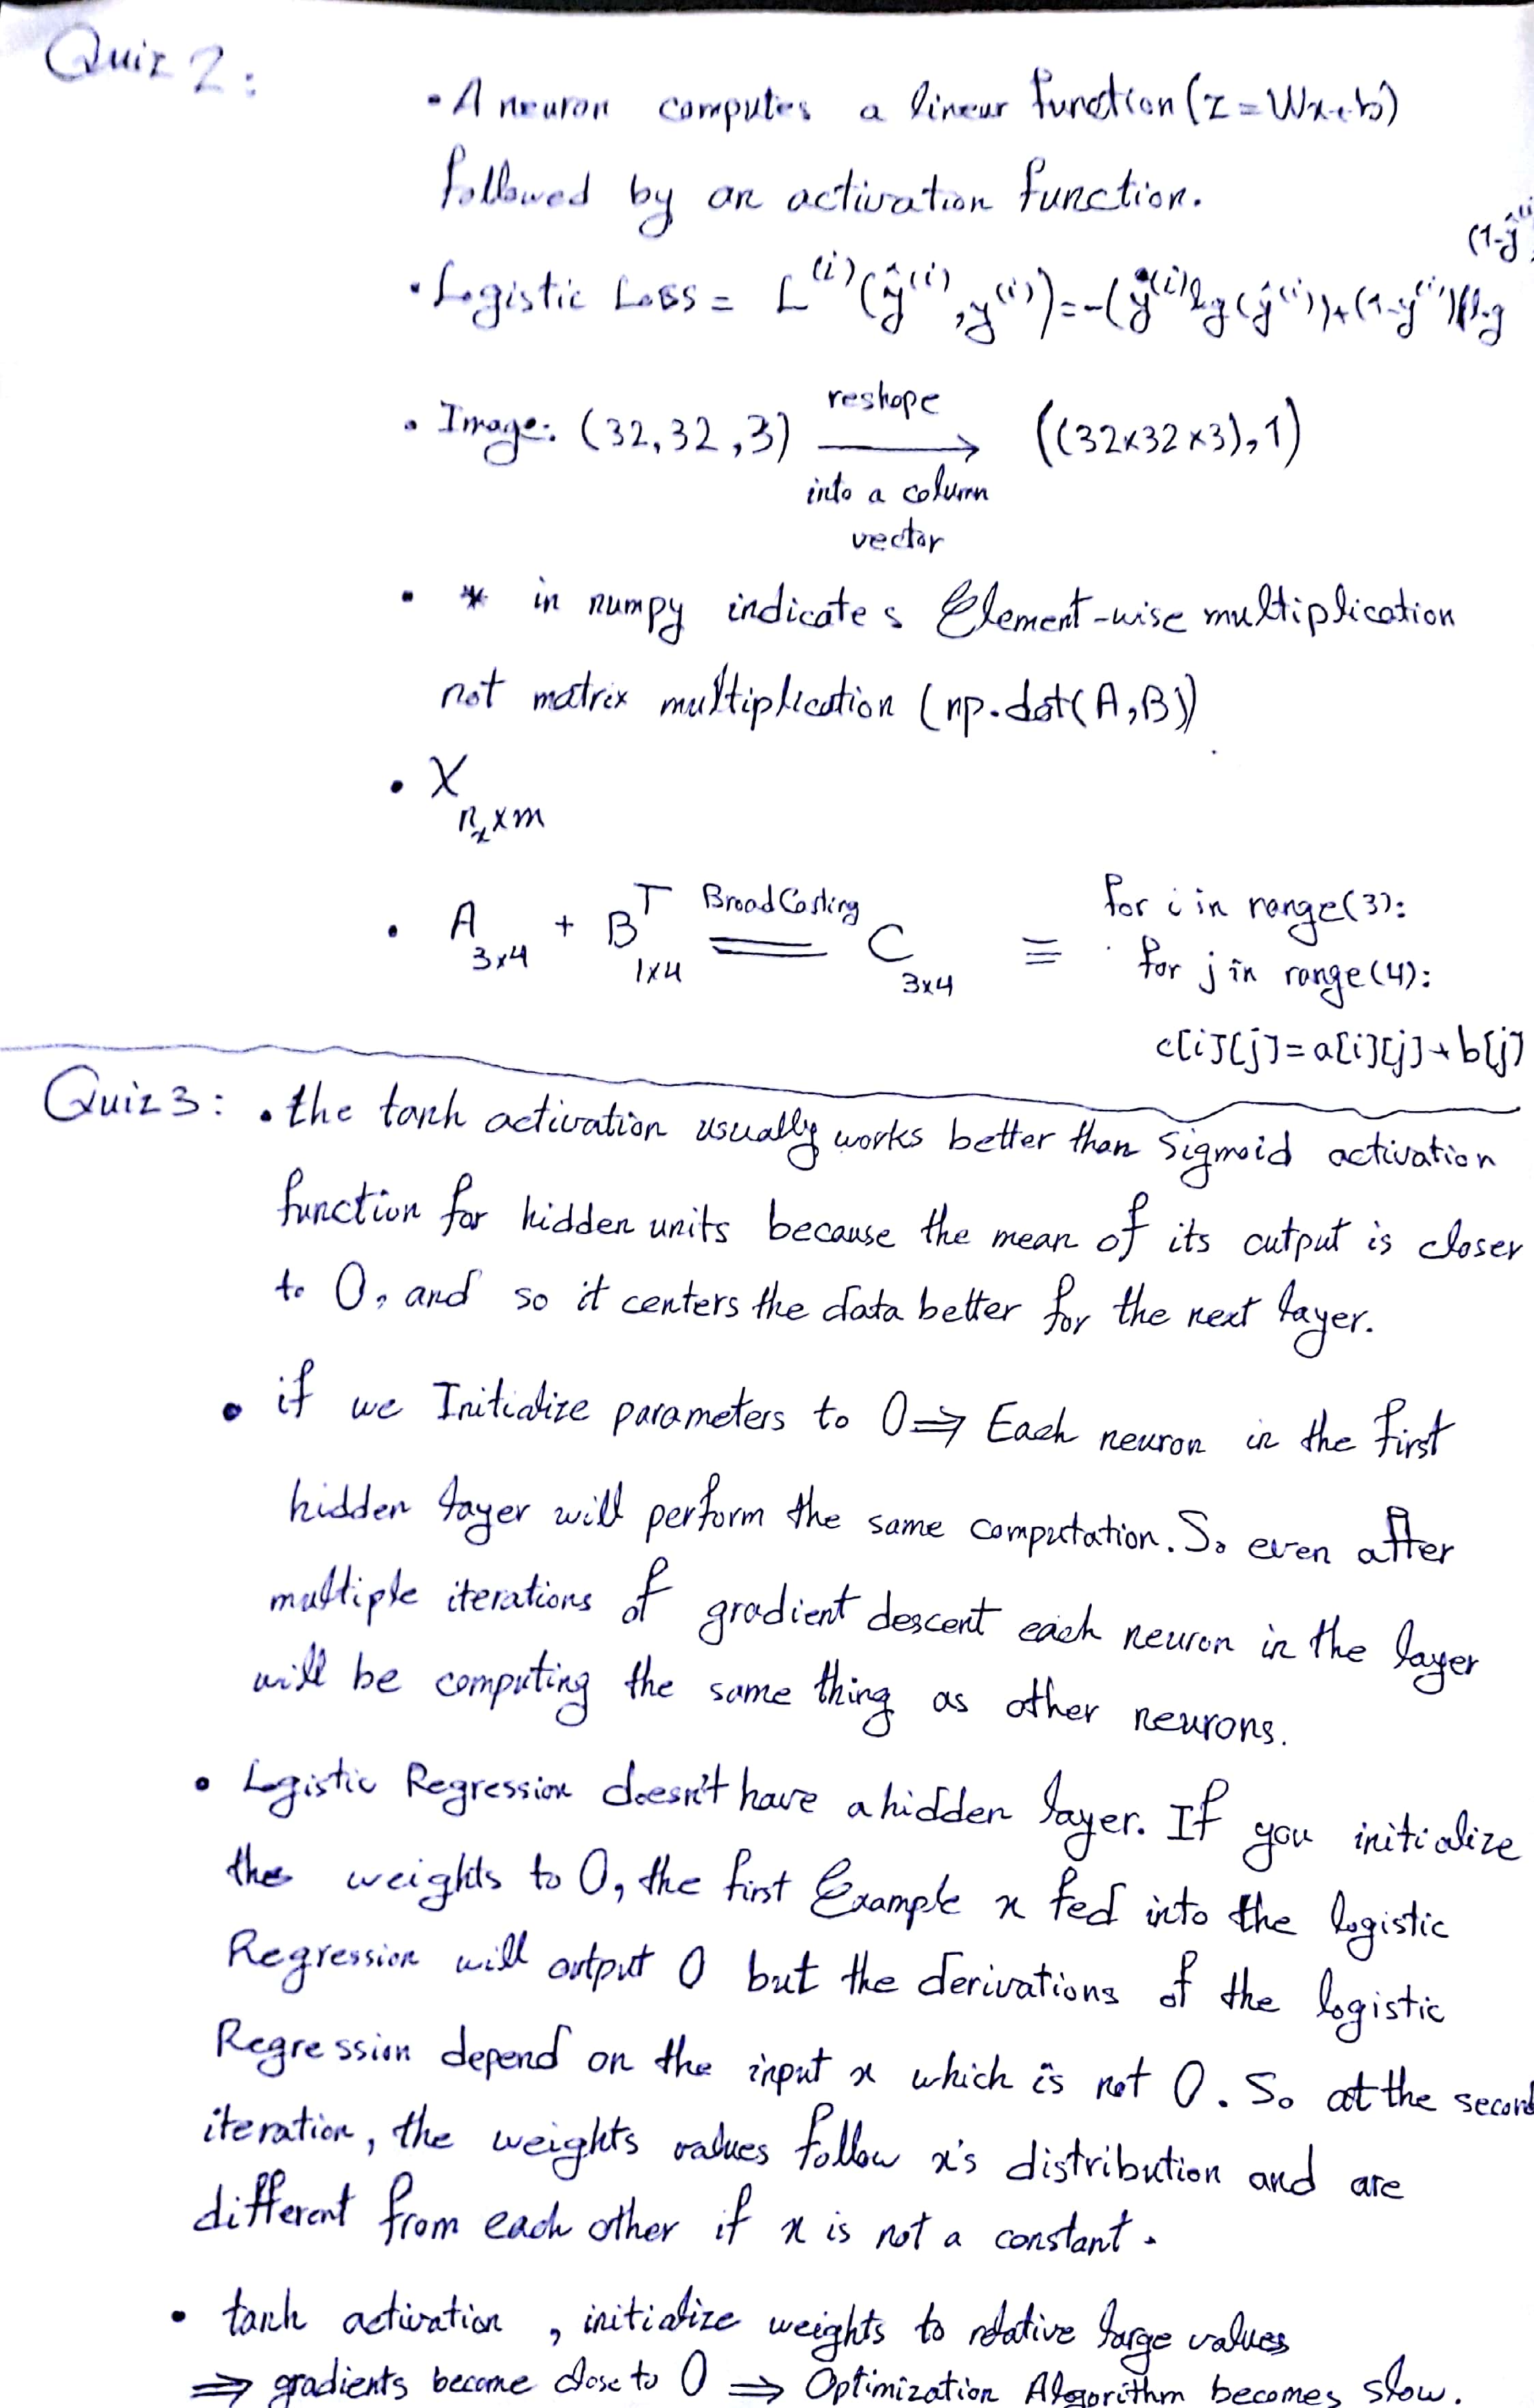 Quiz 2:
• A neuron computes a linear function (z = Wx+b)
followed by an activation function.
• Logistic Loss = L^(i)(ŷ^(i), y^(i)) = -(y^(i) log(ŷ^(i)) + (1-y^(i)) log (1-ŷ^(i)
• Image: (32, 32, 3) reshape → ((32x32x3), 1)
into a column
vector
• * in numpy indicates Element-wise multiplication
not matrix multiplication (np.dot(A, B))
• X
n_x x m
• A 3x4 + B^T 1x4 BroadCasting = C 3x4 ≡ for i in range(3):
for j in range(4):
c[i][j] = a[i][j] + b[j]
Quiz 3: • the tanh activation usually works better than sigmoid activation
function for hidden units because the mean of its output is closer
to 0, and so it centers the data better for the next layer.
• if we Initialize parameters to 0 ⇒ Each neuron in the first
hidden layer will perform the same computation. So even after
multiple iterations of gradient descent each neuron in the layer
will be computing the same thing as other neurons.
• Logistic Regression doesn't have a hidden layer. If you initialize
the weights to 0, the first Example x fed into the logistic
Regression will output 0 but the derivations of the logistic
Regression depend on the input x which is not 0. So at the second
iteration, the weights values follow x's distribution and are
different from each other if x is not a constant.
• tanh activation, initialize weights to relative large values
⇒ gradients become close to 0 ⇒ Optimization Algorithm becomes slow.